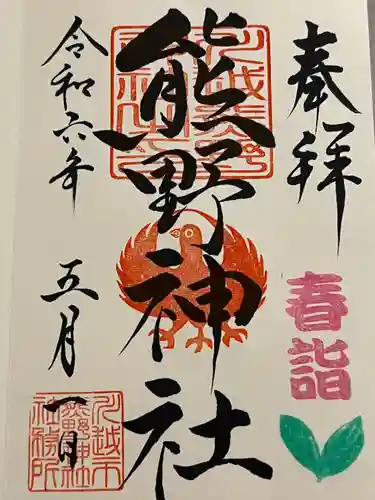 奉拝
春詣
熊野神社
令和六年
五月
一日